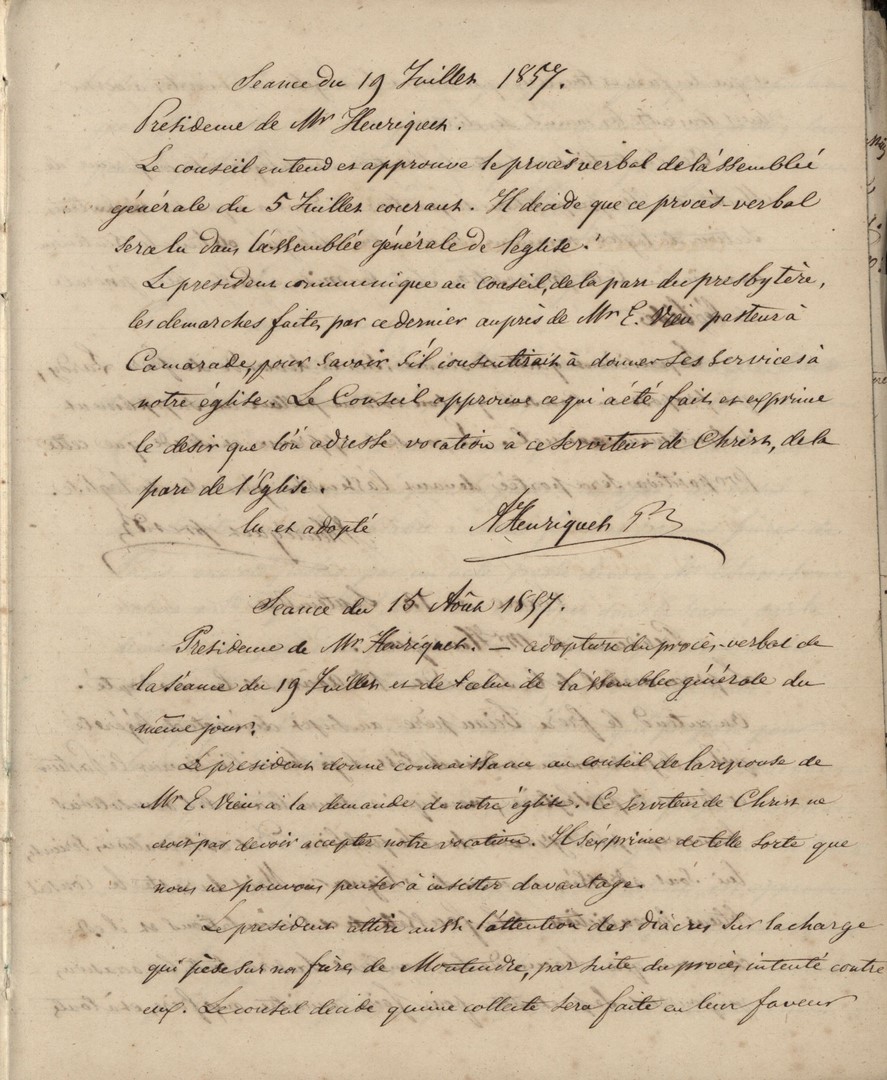 Seance du 19 Juillet 1857.
Présidence de Mr Henriquet.
Le conseil entend et approuve le procès verbal de l'assemblée
générale du 5 Juillet courant. Il decide que ce procès-verbal
sera lu dans l'assemblée générale de l'église.
Le president communique au conseil, de la part du presbytère,
les demarches faites par ce dernier auprès de Mr E. Vieu pasteur à
Camarade, pour savoir s'il consentirait à donner ses services à
notre église. Le Conseil approuve ce qui a été fait et exprime
le desir que l'on adresse vocation à ce serviteur de Christ, de la
part de l'Eglise.
lu et adopté
Henriquet
Seance du 15 Août 1857.
Presidence de Mr Henriquet. — adoption du procès-verbal de
la séance du 19 Juillet et de celui de l'assemblée générale du
même jour.
Le président donne connaissance au conseil de la reponse de
Mr E. Vieu à la demande de notre église. Ce serviteur de Christ ne
croit pas devoir accepter notre vocation. Il s'exprime de telle sorte que
nous ne pouvons penser à insister davantage.
Le president attire aussi l'attention des diacres sur la charge
qui pèse sur nos frères de Montendre, par suite du procès intenté contre
eux. Le conseil decide qu'une collecte sera faite en leur faveur